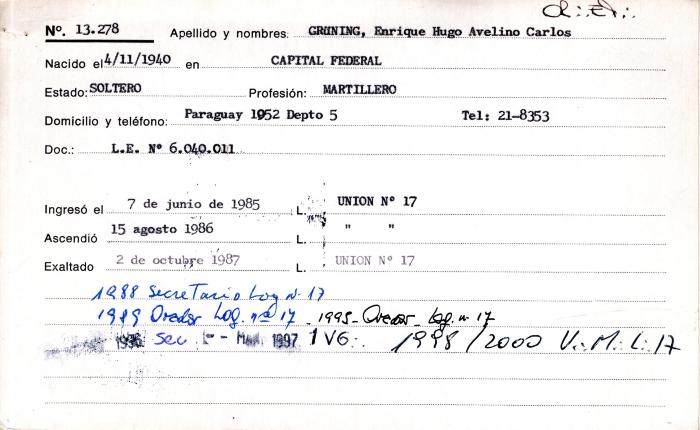 Nº. 13.278 Apellido y nombres: GRÜNING, Enrique Hugo Avelino Carlos
Nacido el 4/11/1940 en CAPITAL FEDERAL
Estado: SOLTERO Profesión: MARTILLERO
Domicilio y teléfono: Paraguay 1952 Depto 5 Tel: 21-8353
Doc.: L.E. Nº 6.040.011
Ingresó el 7 de junio de 1985 L. UNION Nº 17
Ascendió 15 agosto 1986 L. " "
Exaltado 2 de octubre 1987 L. UNION Nº 17
1988 Secretario Log nº 17
1989 Orador Log. nº 17 - 1995 - Orador Log. nº 17
1996 Sec 1997 1 VG:. 1998/2000 V:. M:. L:. 17